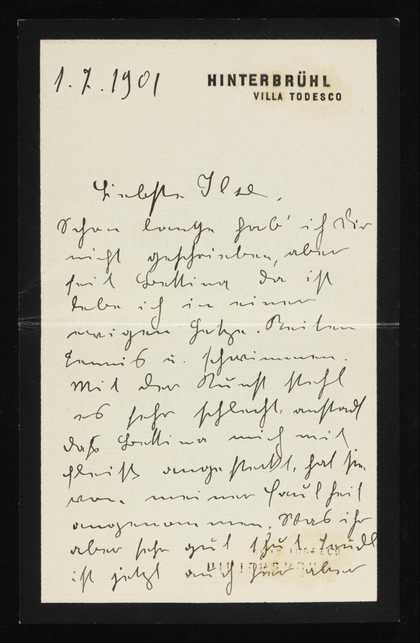 1.7.1901
HINTERBRÜHL
VILLA TODESCO
Liebste Ilse,
Schon lange hab' ich Dir
nicht geschrieben, aber
seit Bettina da ist
lebe ich in einer
ewigen Hetze. Reiten
Tennis u. schwimmen.
Mit der Kunst steht
es sehr schlecht, anstatt
daß Bettina mich mit
Fleiß angesteckt, hat sie
von meiner Faulheit
angenommen. Was ihr
aber sehr gut thut.
ist jetzt auch hier aber